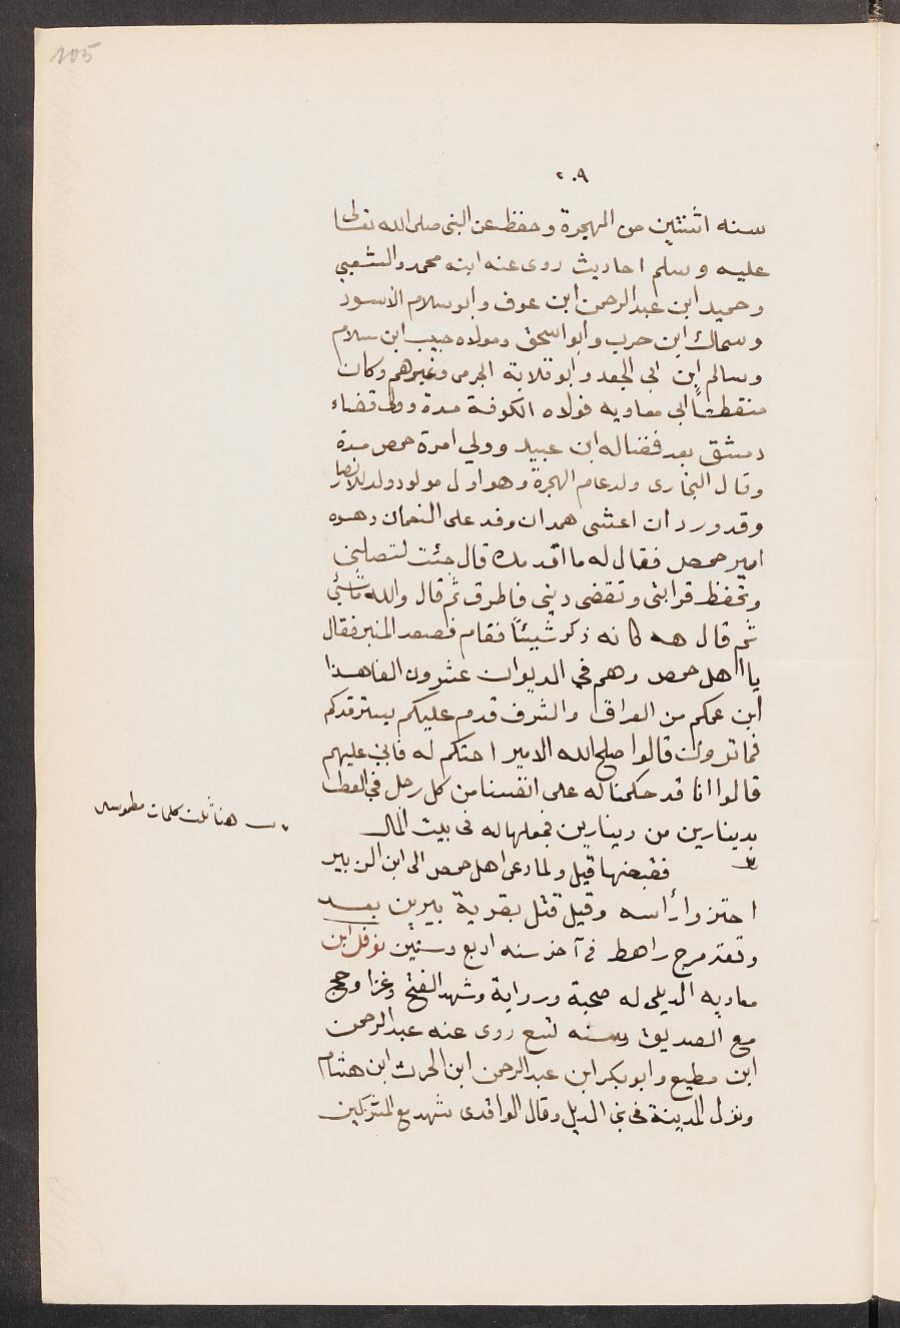 105
٢٠٩
سنه اثنتين من الهجرة وحفظ عن النبي صلى الله تعالى
عليه وسلم احاديث روى عنه ابنه محمد والشعبي
وحميد ابن عبد الرحمن ابن عوف وابو سلام الاسود
وسماك ابن حرب وابو اسحق ومولاه حبيب ابن سلام
وسالم ابن ابى الجعد وابو قلابة الجرمى وغيرهم وكان
منقطعاً الى معاويه فولاه الكوفة مدة وولى قضاء
دمشق بعد فضاله ابن عبيد وولي امرة حمص مدة
وقال البخارى ولد عام الهجرة وهو اول مولود ولد للانصار
وقد ورد ان اعشى همدان وفد على النعمان وهو
امير حمص فقال له ما اقدمك قال جئت لتصلنى
وتحفظ قرابتى وتقضى دينى فاطرق ثم قال والله ما شئ
ثم قال هه كانه ذكر شيئاً فقام فصعد المنبر فقال
يا اهل حمص وهم في الديوان عشرون الفا هذا
ابن عمكم من العراق والشرف قدم عليكم يسترفدكم
فما ترون قالوا صلح الله الامير احتكم له فابى عليهم
قالوا انا قد حكمنا له على انفسنا من كل رجل في العطا
بدينارين من دينارين فجعلها له فى بيت المال
هنا ثلث كلمات مطموسه
٣ فقبضها قيل ولما دعى اهل حمص الى ابن الزبير
احتزوا رأسه وقيل قتل بقرية بيرين بعد
وقعة مرج راهط فى آخر سنه اربع وستين نوفل ابن
معاويه الديلى له صحبة ورواية وشهد الفتح وغزا وحج
مع الصديق وسنه تسع روى عنه عبد الرحمن
ابن مطيع وابو بكر ابن عبد الرحمن ابن الحرث ابن هشام
ونزل المدينة فى بنى الديل وقال الواقدى شهد مع المشركين